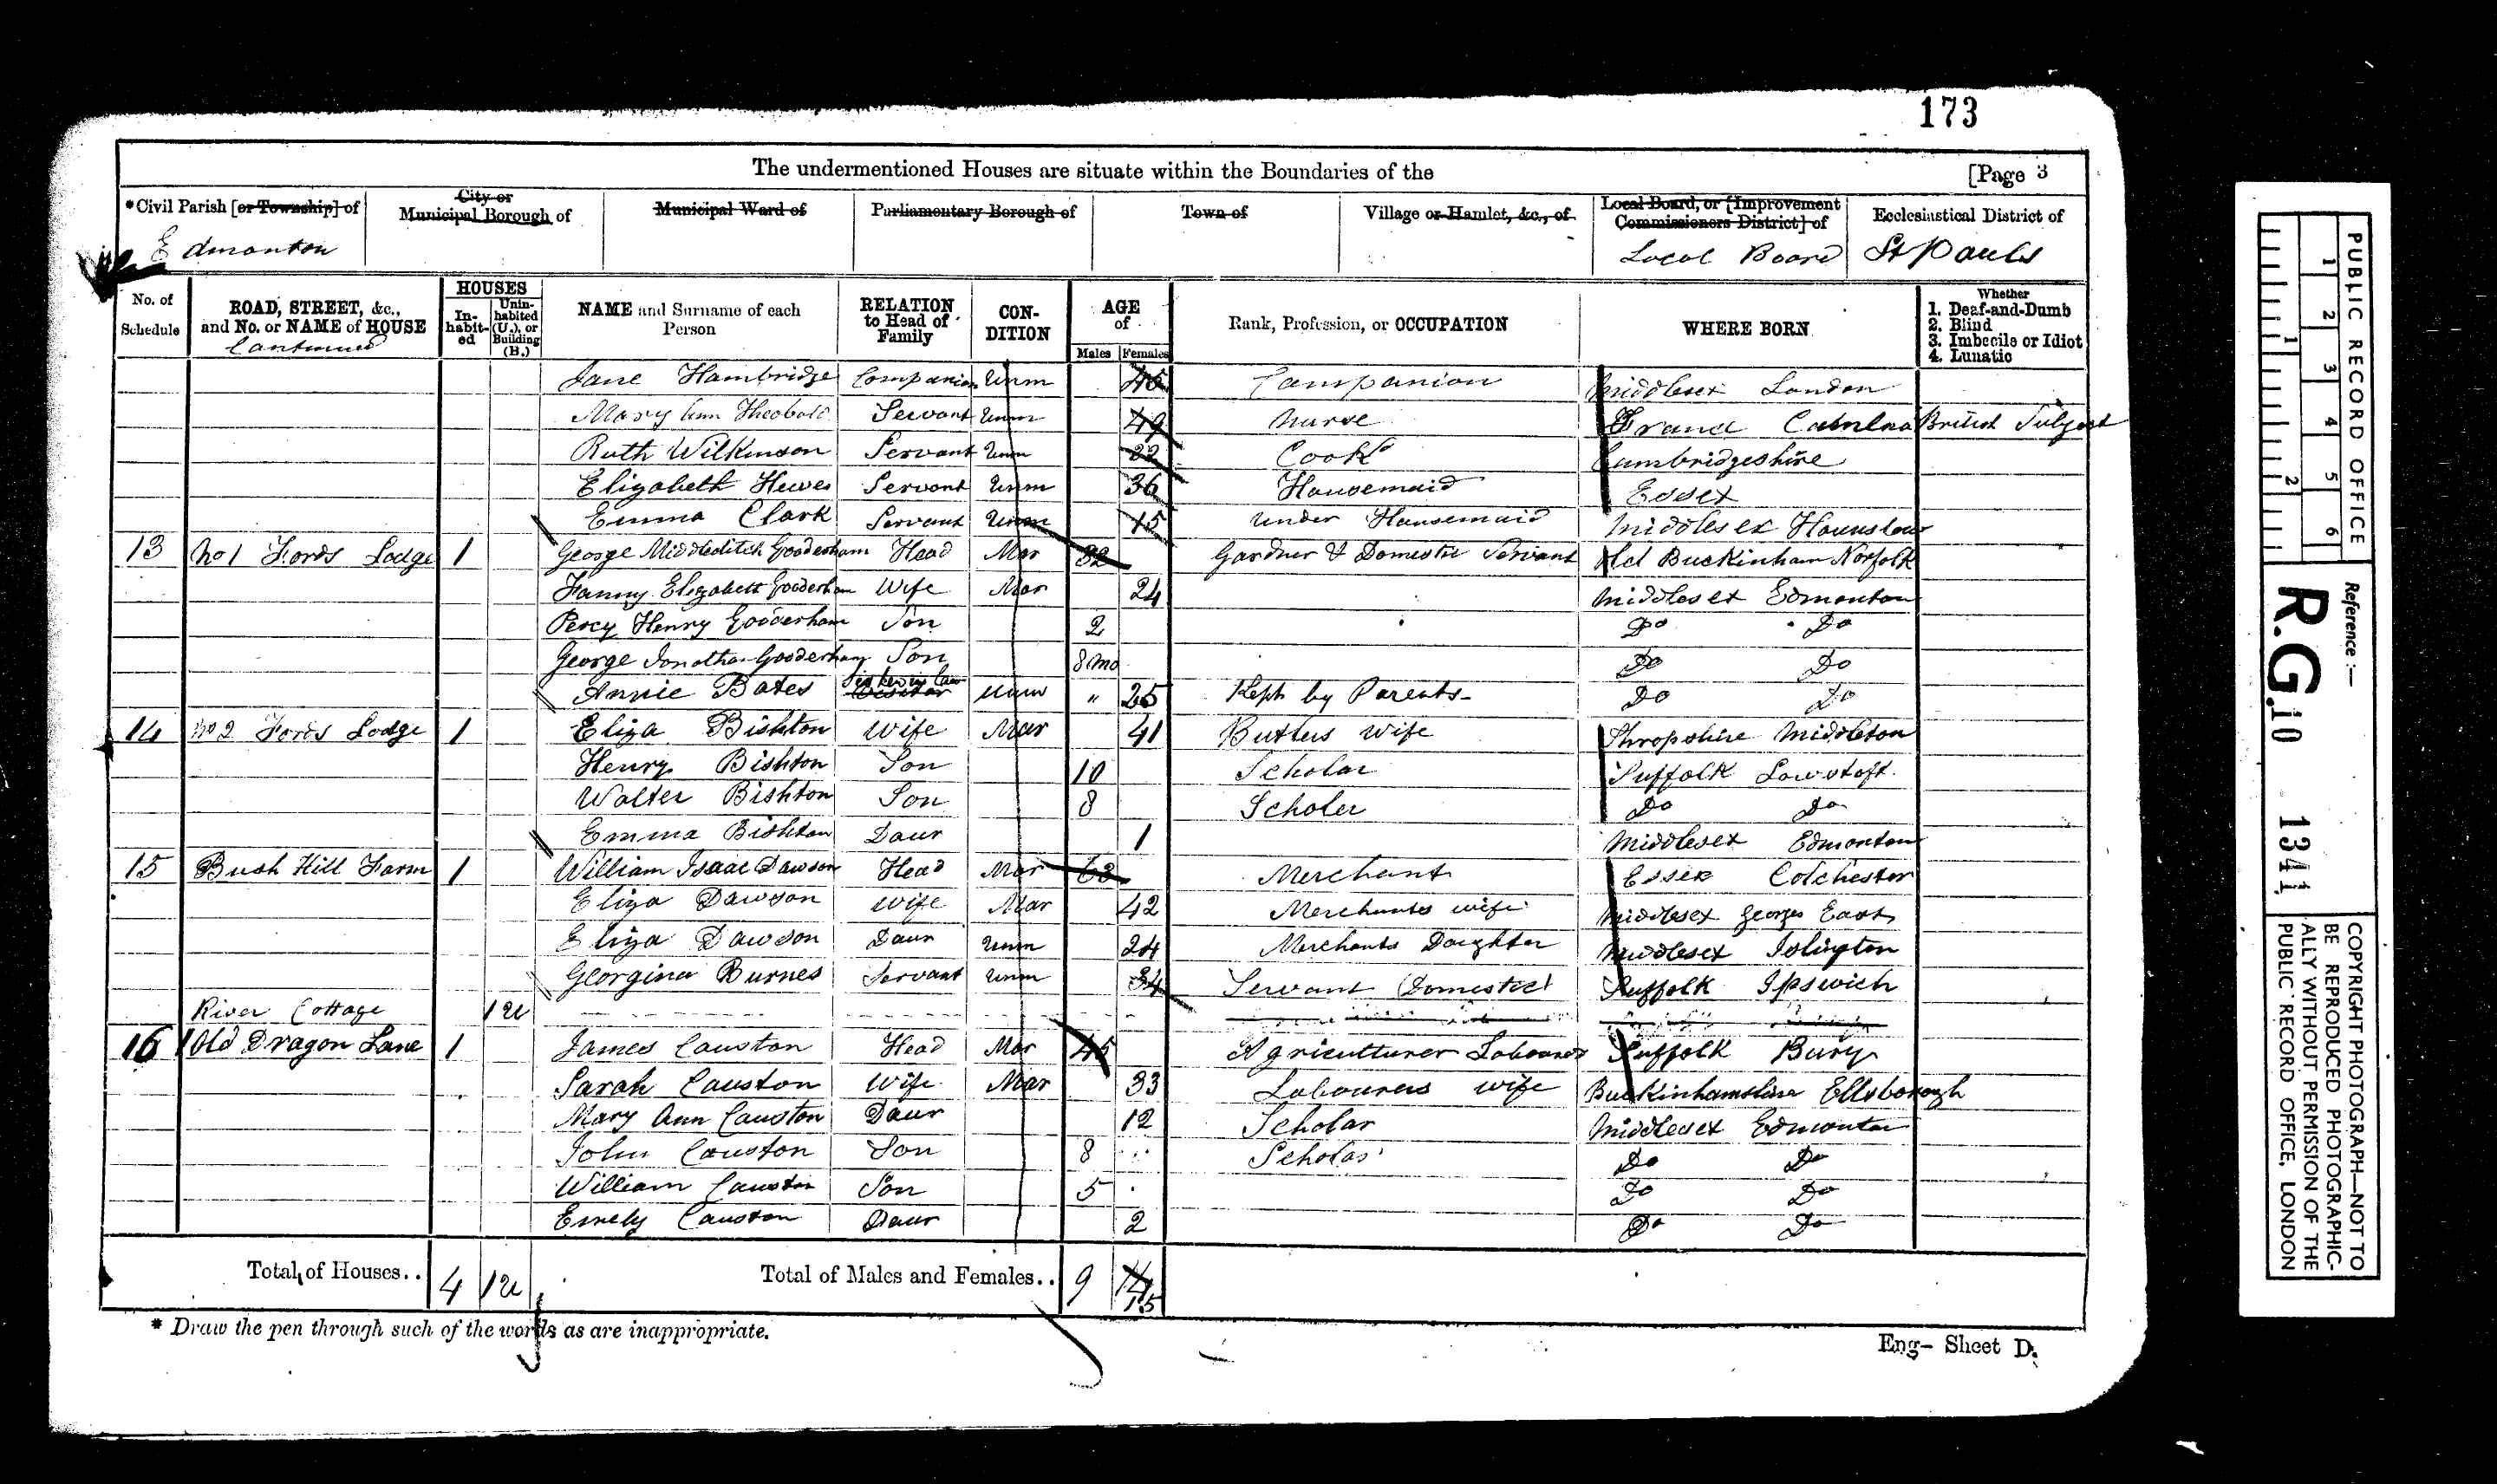 173
The undermentioned Houses are situate within the Boundaries of the [Page 3
*Civil Parish [or Township] of City or Municipal Borough of Municipal Ward of Parliamentary Borough of Town of Village or Hamlet, &c., of Local Board, or [Improvement Commissioners District] of Ecclesiastical District of
Edmonton Local Board St Pauls
No. of Schedule ROAD, STREET, &c., and No. or NAME of HOUSE HOUSES In-habit-ed Unin-habited (U.), or Building (B.) NAME and Surname of each Person RELATION to Head of Family CON-DITION AGE of Males Females Rank, Profession, or OCCUPATION WHERE BORN Whether 1. Deaf-and-Dumb 2. Blind 3. Imbecile or Idiot 4. Lunatic
Continued
Jane Hambridge Companion Unm 45 Companion Middlesex London
Mary Ann Theobald Servant Unm 49 Nurse British Subject
Ruth Wilkinson Servant Unm 22 Cook Cambridgeshire
Elizabeth Hewes Servant Unm 36 Housemaid Essex
Emma Clark Servant Unm 15 Under Housemaid Middlesex Hounslow
13 No 1 Fords Lodge 1 George Middleditch Gooderham Head Mar 32 Gardner & Domestic Servant Buckinham Norfolk
Fanny Elizabeth Gooderham Wife Mar 24 Middlesex Edmonton
Percy Henry Gooderham Son 2 Do Do
George Jonathan Gooderham Son 8 mo Do Do
Annie Bates Visitor Sister in law Unm " 25 Kept by Parents Do Do
14 No 2 Fords Lodge 1 Eliza Bishton Wife Mar 41 Butlers Wife Shropshire Middleton
Henry Bishton Son 10 Scholar Suffolk Lowstoft
Walter Bishton Son 8 Scholer Do Do
Emma Bishton Daur 1 Middlesex Edmonton
15 Bush Hill Farm 1 William Isaac Dawson Head Mar 63 Merchant Essex Colchester
Eliza Dawson Wife Mar 42 Merchants wife Middlesex Georges East
Eliza Dawson Daur Unm 24 Merchants Daughter Middlesex Islington
Georgina Burnes Servant Unm 34 Servant (Domestic) Suffolk Ipswich
River Cottage 1 U
16 Old Dragon Lane 1 James Causton Head Mar 45 Agriculturer Labourer Suffolk Bury
Sarah Causton Wife Mar 33 Labourers wife Buckinhamshire Ellsborough
Mary Ann Causton Daur 12 Scholar Middlesex Edmonton
John Causton Son 8 Scholar Do Do
William Causton Son 5 Do Do
Emely Causton Daur 2 Do Do
Total of Houses.. 4 1 U Total of Males and Females.. 9 14 15
* Draw the pen through such of the words as are inappropriate.
Eng- Sheet D.
PUBLIC RECORD OFFICE
1 2 3 4 5 6
1 2
Reference :-
R.G. 10 1341
COPYRIGHT PHOTOGRAPH—NOT TO
BE REPRODUCED PHOTOGRAPHIC-
ALLY WITHOUT PERMISSION OF THE
PUBLIC RECORD OFFICE, LONDON